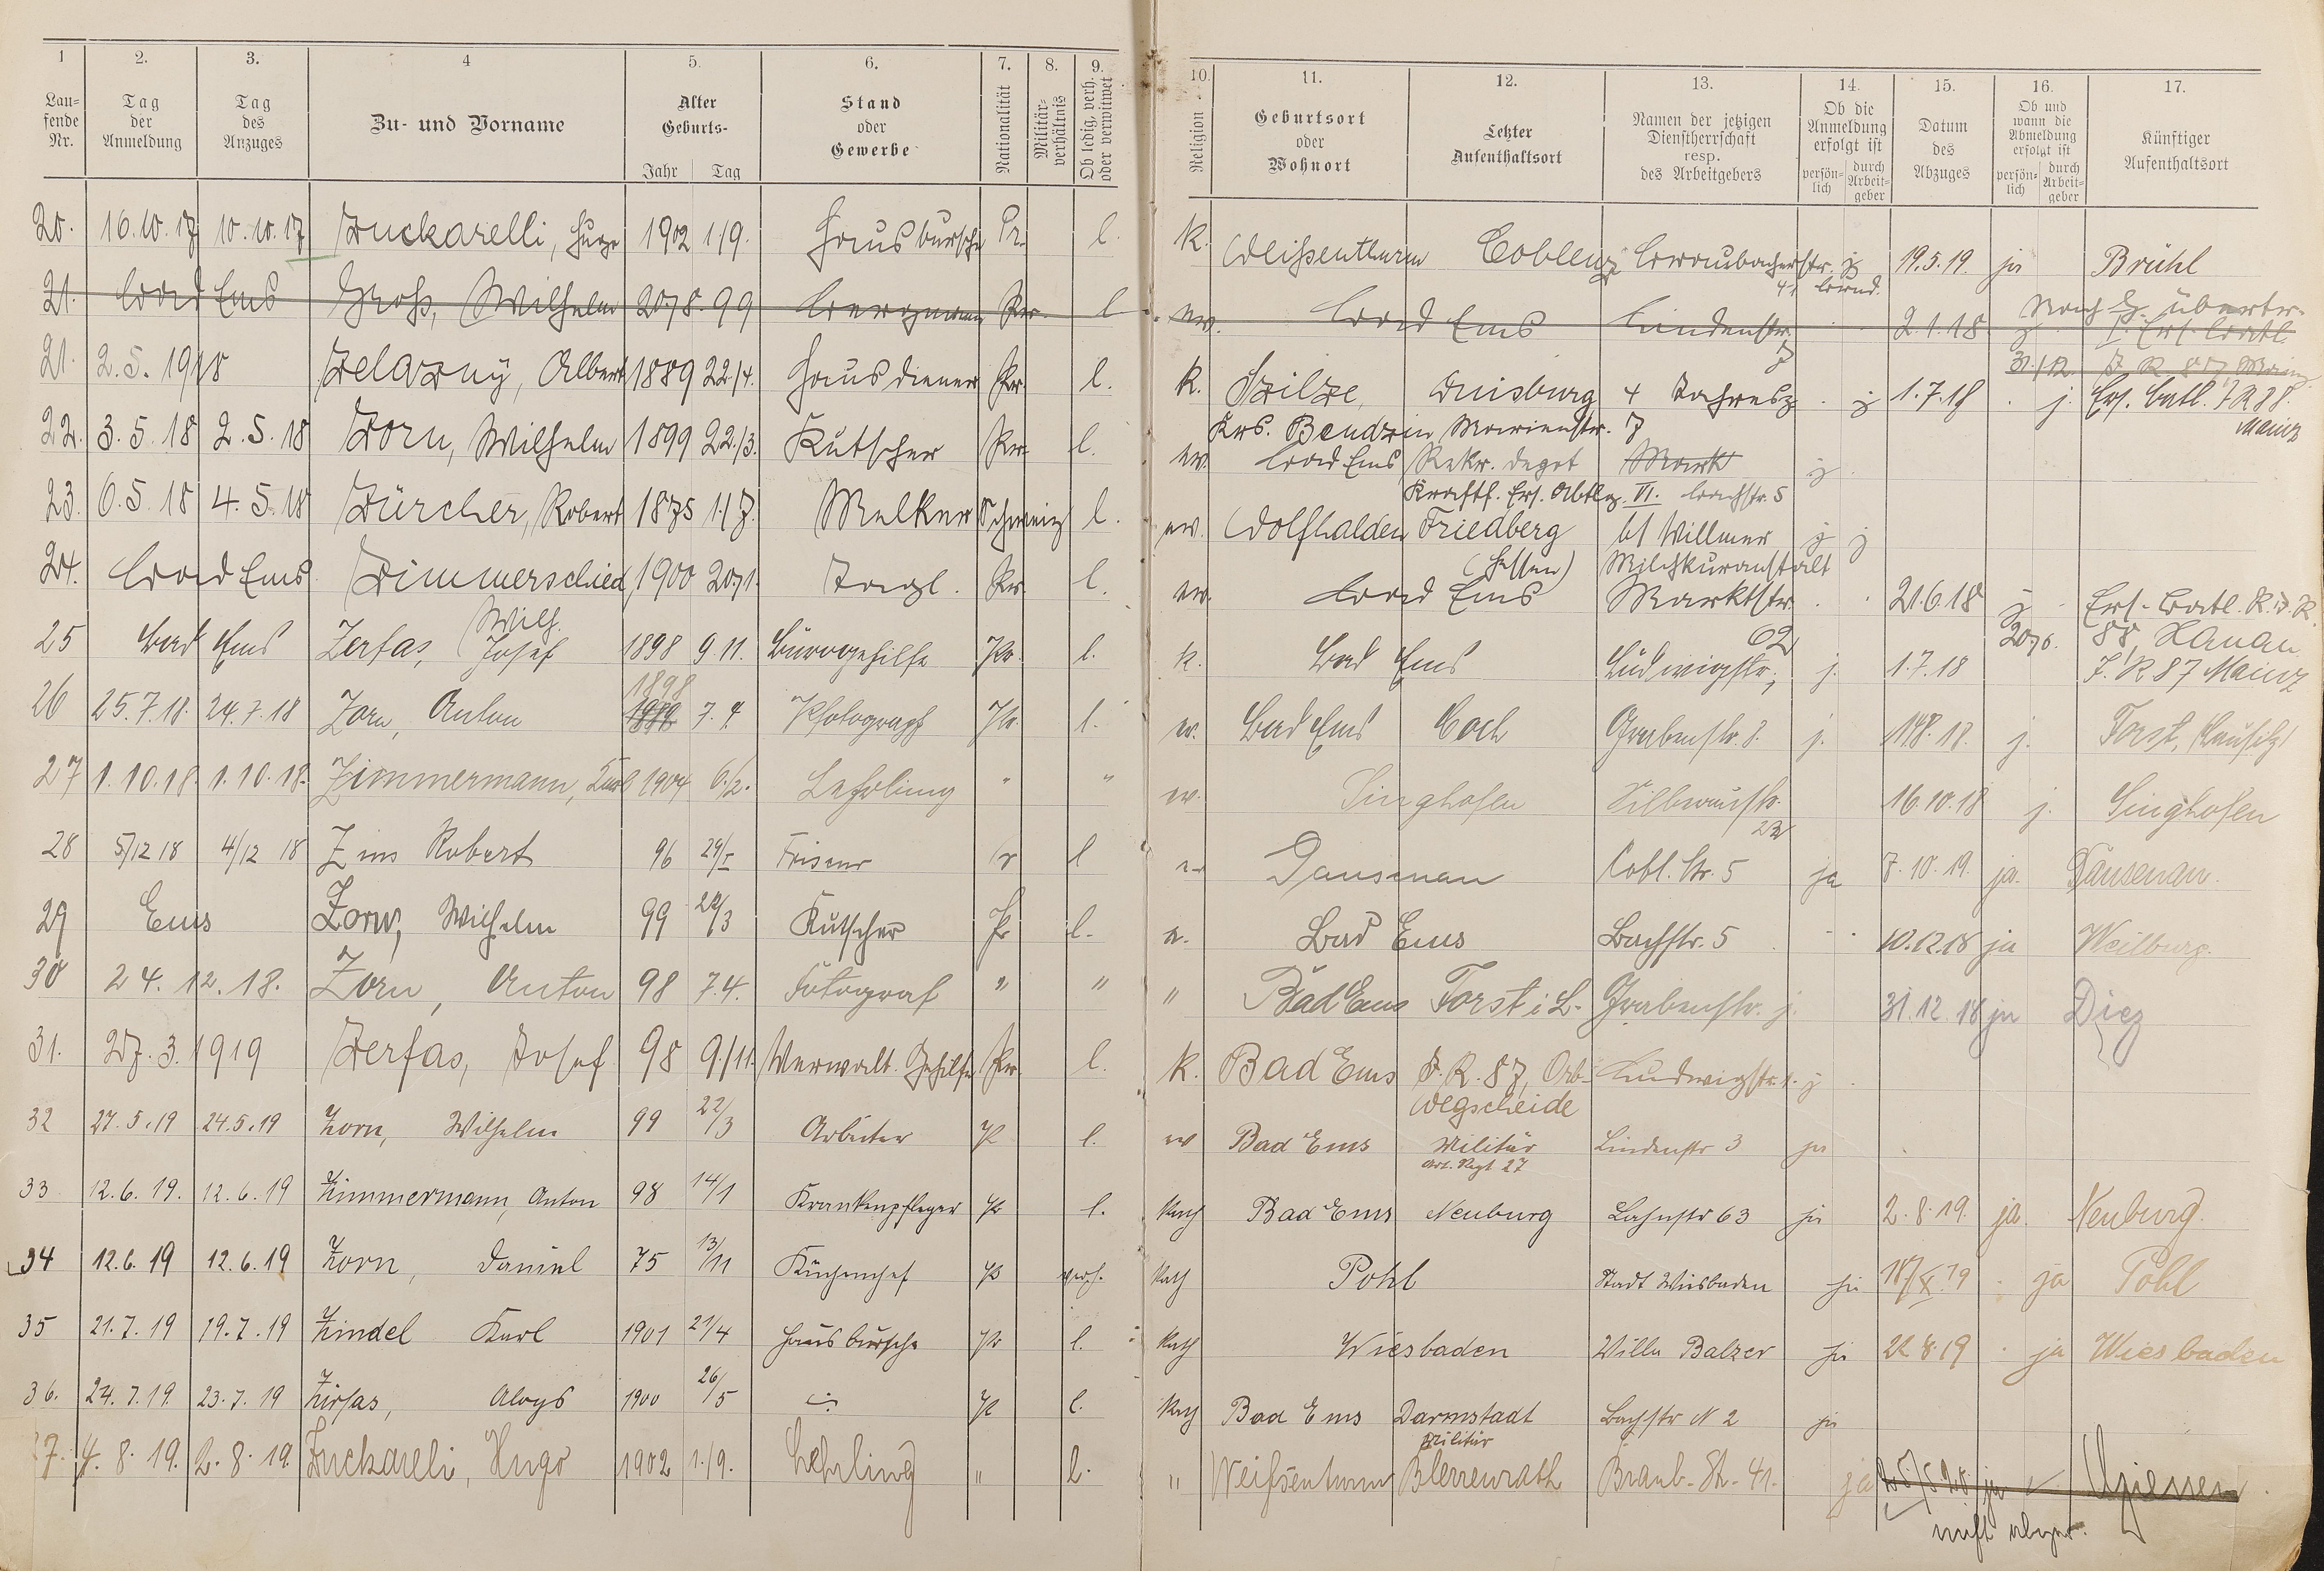 1 2. 3. 4 5. 6. 7. 8. 9. 10. 11. 12. 13. 14. 15. 16. 17.
Laufende Nr. Tag der Anmeldung Tag des Anzuges Zu- und Vorname Alter Geburts- Jahr Tag Stand oder Gewerbe Nationalität Militärverhältnis Ob ledig, verh. oder verwitwet Religion Geburtsort oder Wohnort Letzter Aufenthaltsort Namen der jetzigen Dienstherrschaft resp. des Arbeitgebers Ob die Anmeldung erfolgt ist persönlich durch Arbeitgeber Datum des Abzuges Ob und wann die Abmeldung erfolgt ist persönlich durch Arbeitgeber Künftiger Aufenthaltsort
20. 16.10.17 10.10.17 Zuckarelli, Hugo 1902 1/9. Hausbursche Pr. l. k. Weißenthurm Coblenz Braubacherstr. 41 j 19.5.19. ja Brühl
21. Bad Ems Groß, Wilhelm 20/8. 99 Bergmann Pr. l ev. Bad Ems Lindenstr. 7 2.1.18 31./12. I. Ers. Batl. I.R. 87, Mainz
21. 2.5.1918 Zelazny, Albert 1889 22./4. Hausdiener Pr. l. k. Szilze, Krs. Bendzin Duisburg Marienstr. 7 j 1.7.18 j. Ers. Batl. I.R 88. Mainz
22. 3.5.18 2.5.18 Zorn, Wilhelm 1899 22./3. Kutscher Pr. l. ev. Bad Ems Rekr. Depot Kraftf. Ers. Abtlg. VI. Mark Bachstr. 5 j
23. 6.5.18 4.5.18 Zürcher, Robert 1875 1./7. Melker Schweiz l. ev. Wolfhalden Friedberg (Hessen) bt Willmer Milchkuranstalt j j
24. Bad Ems Zimmerschied, Wilh. 1900 20/1. Pr. l. ev. Bad Ems Marktstr. 62 21.6.18 j 20/6. Ers.-Batl. R.I.R. 88, Hanau
25 Bad Ems Zerfas, Josef 1898 9.11. Bürogehilfe Pr. l. k. Bad Ems Ludwigstr. j. 1.7.18 I.R 87 Mainz
26 25.7.18. 24.7.18 Zorn, Anton 1898 7.4 Photograph Pr. l. ev. Bad Ems Coch Grabenstr. 8. j. 14.8.18. j. Forst, (Lausitz)
27 1.10.18. 1.10.18. Zimmermann, Karl 1904 6./2. Lehrling " " ev. Singhofen 16.10.18 j. Singhofen
28 5/12 18 4/12 18 Zins Robert 96 29/I Friseur Pr l ev Dausenau Cobl. Str. 5 ja 7.10.19. ja. Dausenau.
29 Ems Zorn, Wilhelm 99 22/3 Kutscher Pr l. ev. Bad Ems Bachstr. 5 10.12.18 ja Weilburg.
30 24.12.18. Zorn, Anton 98 7.4. Fotograf " " " Bad Ems Forst i L. Grabenstr. j. 31.12.18 ja Diez
31. 27.3.1919 Zerfas, Josef 98 9./11. Verwalt. Gehilfe Pr. l. k. Bad Ems I.R. 87, Orb-Wegscheide Ludwigstr. 1. j
32 27.5.19 24.5.19 Zorn, Wilhelm 99 22/3 Arbeiter Pr l. ev Bad Ems Militär Art. Regt 27 Lindenstr 3 ja
33 12.6.19. 12.6.19 Zimmermann, Anton 98 14/1 Krankenpfleger Pr l. Kath Bad Ems Neuburg Lahnstr 63 ja 2.8.19. ja. Neuburg.
34 12.6.19 12.6.19 Zorn, Daniel 75 13/11 Küchenchef Pr verh. Kath Pohl Stadt Wiesbaden ja 18/X.19 ja Pohl
35 21.7.19 19.7.19 Zindel Karl 1901 21/4 Hausbursche Pr l. Kath Wiesbaden Villa Balzer ja 22.8.19 ja Wiesbaden
36. 24.7.19. 23.7.19 Zirfas, Aloys 1900 26/5 Pr l. Kath Bad Ems Darmstadt Militär Bachstr N 2 ja
37. 4.8.19. 2.8.19. Zuckareli, Hugo 1902 1./9. Lehrling " l. " Weißenturm Berrenrath Braub. Str. 41. ja ja Giessen